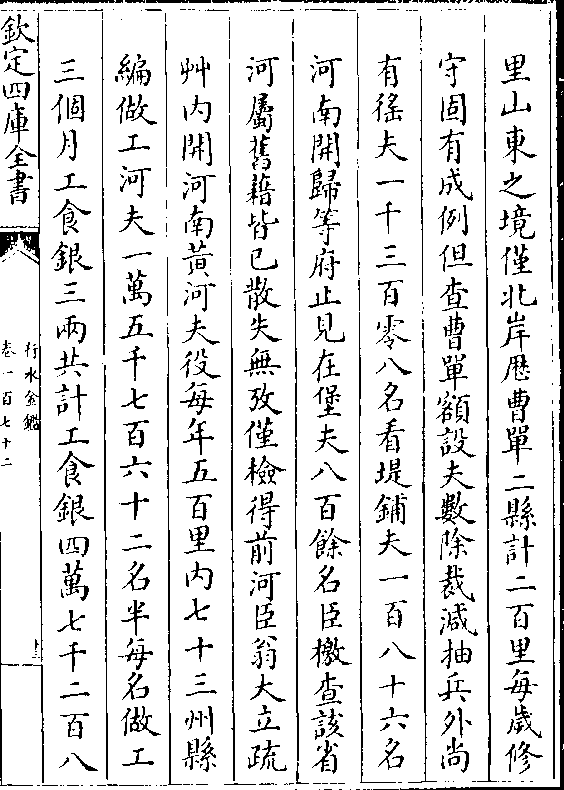 里山東之境僅北岸歴曹單二縣計二百里每歲修
守固有成例但查曹單額設夫數除裁減抽兵外尚
有徭夫一千三百零八名看堤鋪夫一百八十六名
河南開歸等府止見在堡夫八百餘名臣檄查該省
河屬舊藉皆已散失無攷僅檢得前河臣翁大立疏
艸内開河南黄河夫役每年五百里内七十三州縣
編做工河夫一萬五千七百六十二名半每名做工
三個月工食銀三兩共計工食銀四萬七千二百八
欽定四庫全書
行水金鑑
卷一百七十二
十三